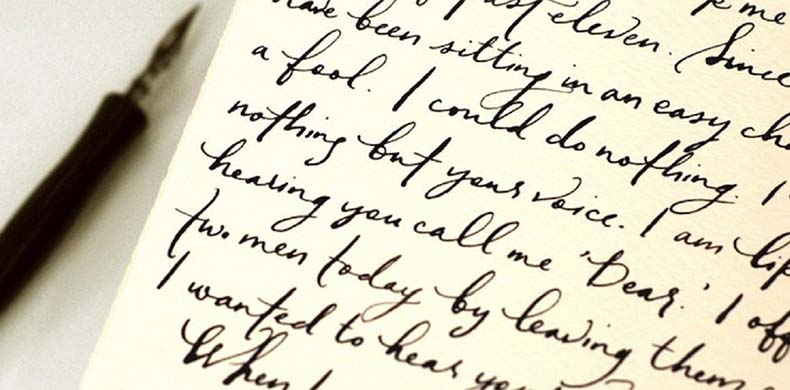 past eleven. Since
have been sitting in an easy
a fool. I could do nothing. I
nothing but your voice. I am
hearing you call me 'Dear.' I
two men today by leaving them
I wanted to hear
When I